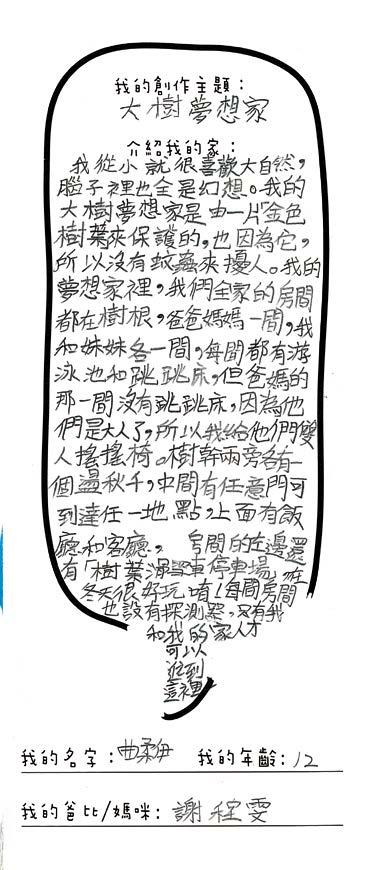 我的創作主題：
大樹夢想家
介紹我的家：
我從小就很喜歡大自然，
腦子裡也全是幻想。我的
大樹夢想家是由一片「金色
樹葉來保護的，也因為它，
所以沒有蚊蟲來擾人。我的
夢想家裡，我們全家的房間
都在樹根，爸爸媽媽一間，我
和妹妹各一間，每間都有游
泳池和跳跳床，但爸媽的
那一間沒有跳跳床，因為他
們是大人了，所以我給他們雙
人搖搖椅。樹幹兩旁各有一
個盪秋千，中間有任意門可
到達任一地點，上面有飯
廳和客廳，房間的左邊還
有「樹葉滑雪車停車場」，在
冬天很好玩唷！每間房間
也設有探測器，只有我
和我的家人才
可以
進到
這裡
我的名字：曲柔伊 我的年齡：12
我的爸比/媽咪：謝程雯